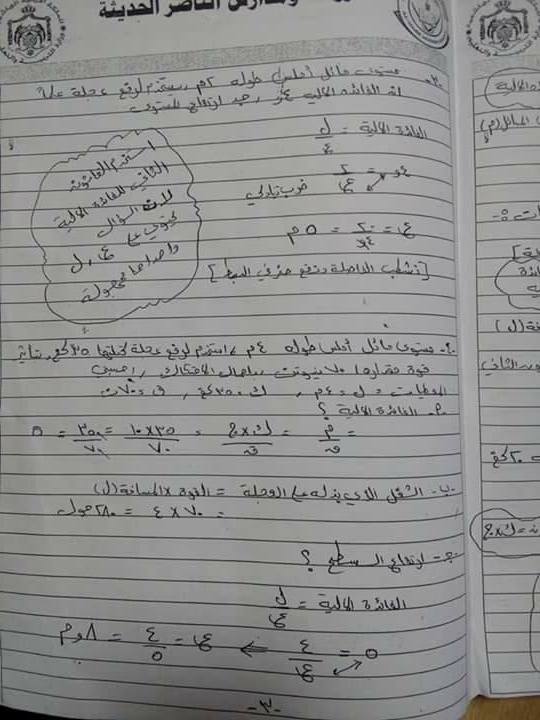 ومدارس الناصر الحديثة
مستوى مائل أملس طوله ٢م يستخدم لرفع عجلة علماً
ان الفائدة الالية ٤و جد ارتفاع المستوى
الفائدة الالية = ل / ع
٤و = ٢ / ع ضرب تبادلي
ع = ٢٠ / ٤و = ٥م
[نشطب الفاصلة ونضع صفر في البسط]
استخدم القانون
الثاني للفائدة الالية
لان السؤال
يحتوي على ع، ل
واحداهما مجهولة
٢- مستوى مائل أملس طوله ٤م استخدم لرفع عجلة كتلتها ٣٥كغ بتأثير
قوة مقدارها ٧٠ نيوتن باهمال الاحتكاك، احسبي
المعطيات: ل = ٤م، ك = ٣٥كغ، ق = ٧٠ن
٢- الفائدة الالية ؟
= م / ق = ك×ج / ق = ٣٥×١٠ / ٧٠ = ٣٥٠ / ٧٠ = ٥
ب- الشغل الذي بذله على العجلة = القوة × المسافة (ل)
= ٧٠×٤ = ٢٨٠ جول
ج- ارتفاع السطح ؟
الفائدة الالية = ل / ع
٥ = ٤ / ع ⇐ ع = ٤ / ٥ = ٨و م
-٣-